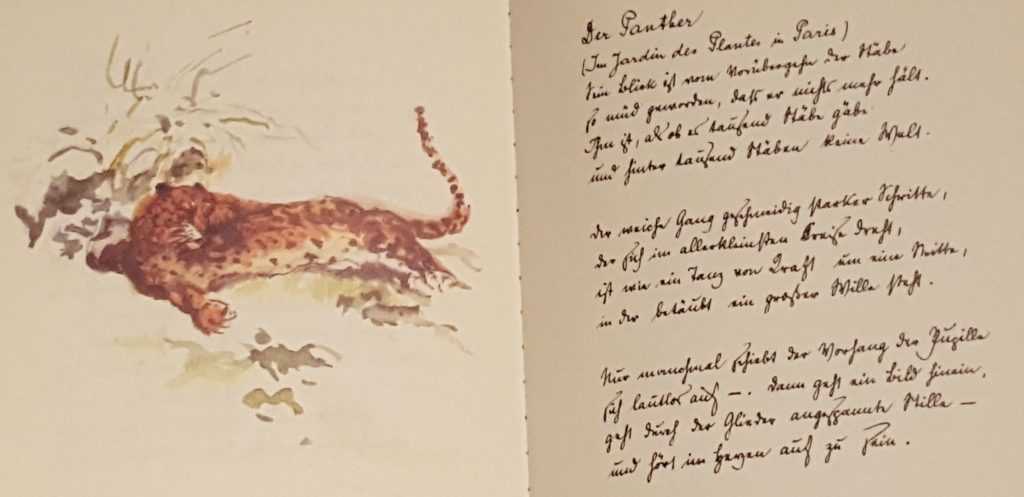 Der Panther
(Im Jardin des Plantes in Paris)
Sein Blick ist vom Vorübergehn der Stäbe
so müd geworden, daß er nichts mehr hält.
Ihm ist, als ob es tausend Stäbe gäbe
und hinter tausend Stäben keine Welt.
Der weiche Gang geschmeidig starker Schritte,
der sich im allerkleinsten Kreise dreht,
ist wie ein Tanz von Kraft um eine Mitte,
in der betäubt ein großer Wille steht.
Nur manchmal schiebt der Vorhang der Pupille
sich lautlos auf —. Dann geht ein Bild hinein,
geht durch der Glieder angespannte Stille —
und hört im Herzen auf zu sein.